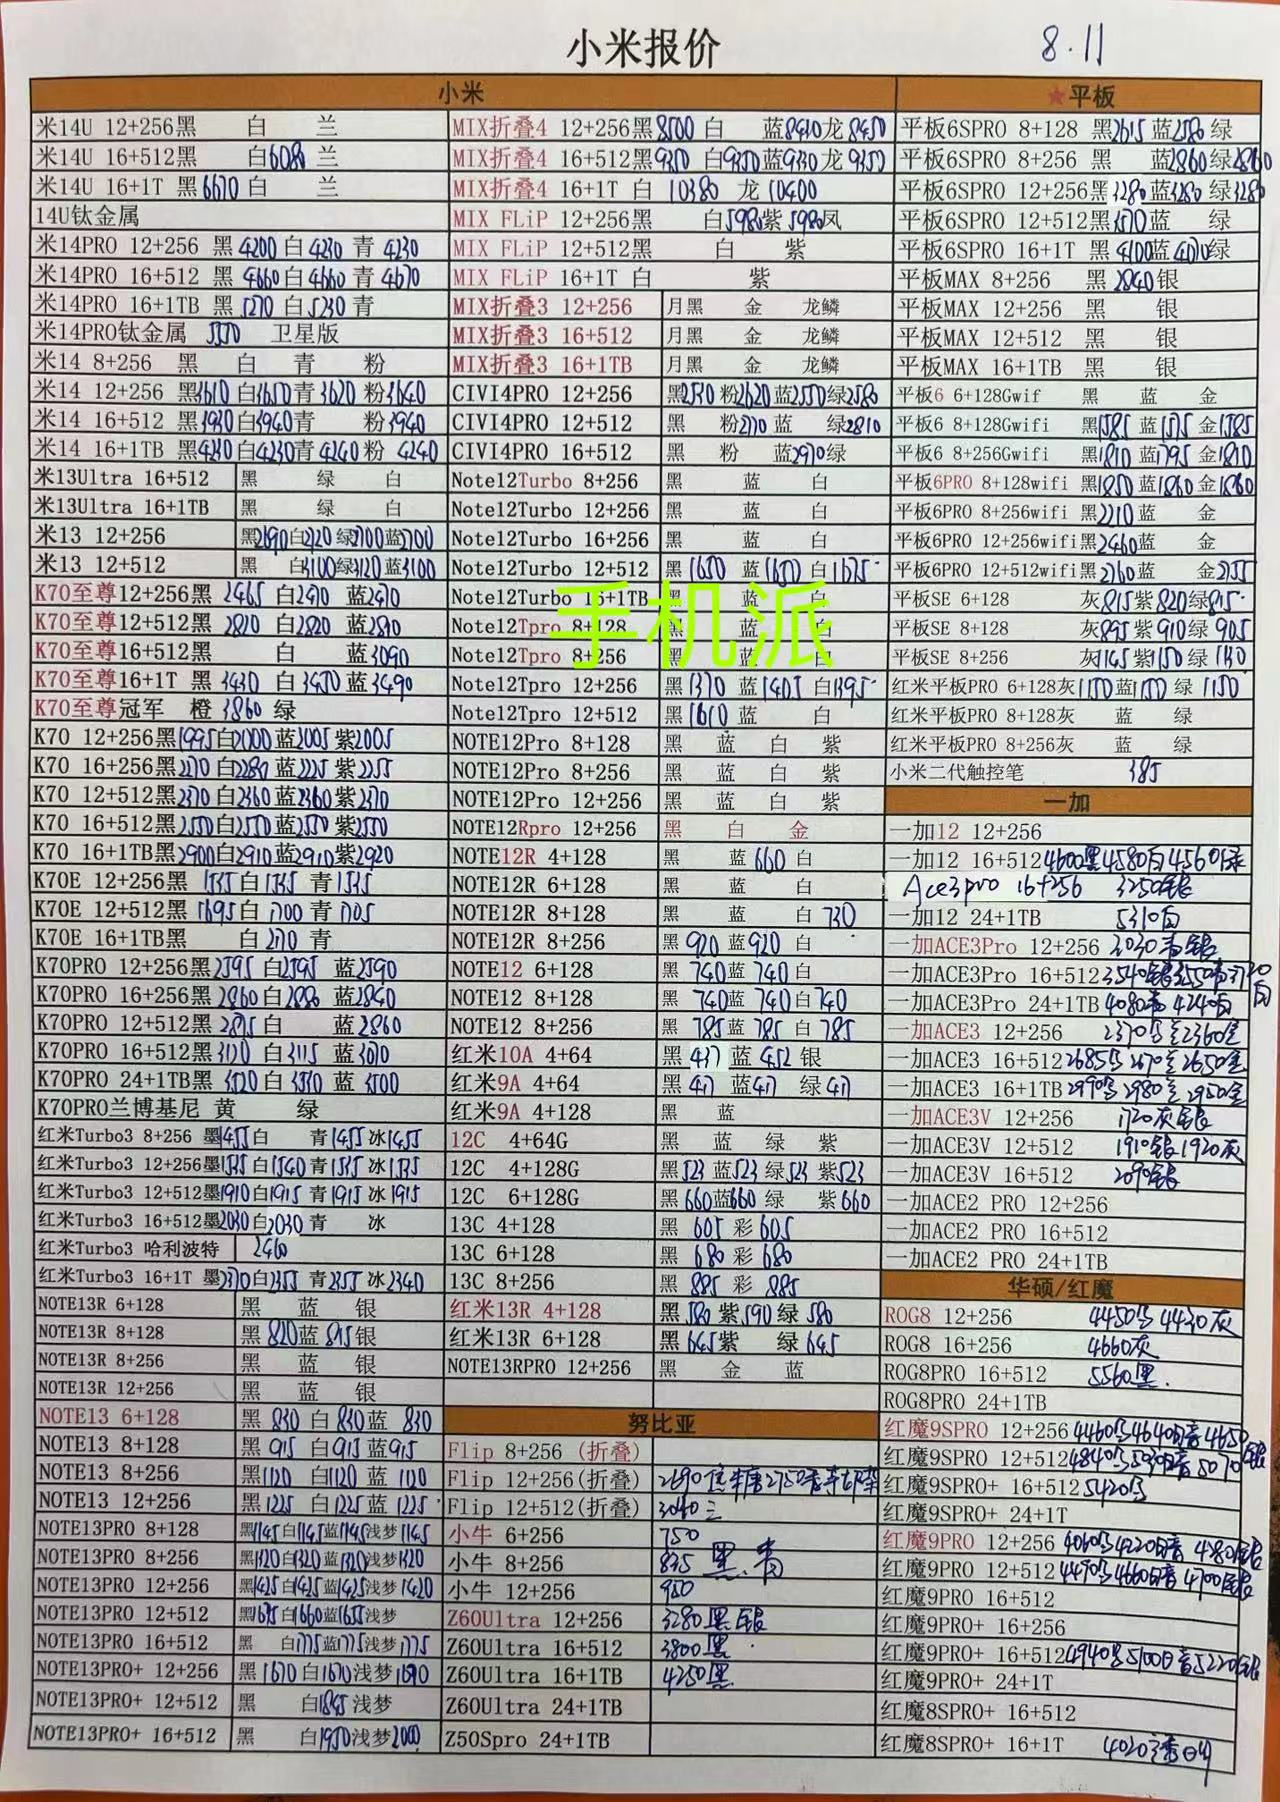 小米报价 8.11
小米
米14U 12+256黑 白 兰
米14U 16+512黑 白6080 兰
米14U 16+1T 黑6670 白 兰
14U钛金属
米14PRO 12+256 黑 4200 白 4230 青 4230
米14PRO 16+512 黑 4660 白 4660 青 4670
米14PRO 16+1TB 黑 5270 白 5230 青
米14PRO钛金属 5550 卫星版
米14 8+256 黑 白 青 粉
米14 12+256 黑3610 白3650 青 3620 粉3640
米14 16+512 黑3930 白3940 青 粉 3940
米14 16+1TB 黑4230 白4230 青4240 粉 4240
米13Ultra 16+512 黑 绿 白
米13Ultra 16+1TB 黑 绿 白
米13 12+256 黑2690 白2720 绿2700 蓝2700
米13 12+512 黑 白3100 绿3120 蓝3100
K70至尊12+256黑 2465 白2470 蓝2470
K70至尊12+512黑 2820 白2820 蓝2810
K70至尊16+512黑 白 蓝3090
K70至尊16+1T 黑 3430 白 3450 蓝 3490
K70至尊冠军 橙 3860 绿
K70 12+256黑1995 白2000 蓝2005 紫2005
K70 16+256黑2270 白2280 蓝2225 紫2255
K70 12+512黑2370 白2360 蓝2360 紫2370
K70 16+512黑2550 白2550 蓝2550 紫2550
K70 16+1TB黑2900 白2910 蓝2910 紫2920
K70E 12+256黑 1535 白1535 青 1535
K70E 12+512黑 1695 白 1700 青 1705
K70E 16+1TB黑 白 2170 青
K70PRO 12+256黑2595 白2595 蓝2590
K70PRO 16+256黑2860 白2880 蓝2840
K70PRO 12+512黑 2875 白 蓝2860
K70PRO 16+512黑3120 白 3115 蓝3070
K70PRO 24+1TB黑 3520 白 3530 蓝 3500
K70PRO兰博基尼 黄 绿
红米Turbo3 8+256 墨1455 白 青1455 冰1455
红米Turbo3 12+256墨1535 白1540 青1535 冰1535
红米Turbo3 12+512墨1910 白1915 青1915 冰1915
红米Turbo3 16+512墨2030 白2030 青 冰
红米Turbo3 哈利波特 2460
红米Turbo3 16+1T 墨2370 白2355 青2355 冰2340
NOTE13R 6+128 黑 蓝 银
NOTE13R 8+128 黑 820 蓝 815 银
NOTE13R 8+256 黑 蓝 银
NOTE13R 12+256 黑 蓝 银
NOTE13 6+128 黑 830 白 830 蓝 830
NOTE13 8+128 黑 915 白 915 蓝 915
NOTE13 8+256 黑1120 白1120 蓝 1120
NOTE13 12+256 黑1225 白1225 蓝1225
NOTE13PRO 8+128 黑1145 白1145 蓝1145 浅梦1145
NOTE13PRO 8+256 黑1320 白1320 蓝1320 浅梦1320
NOTE13PRO 12+256 黑1425 白1425 蓝1425 浅梦1420
NOTE13PRO 12+512 黑1675 白1660 蓝1655 浅梦
NOTE13PRO 16+512 黑 白1775 蓝1775 浅梦1775
NOTE13PRO+ 12+256 黑1670 白1670 浅梦1690
NOTE13PRO+ 12+512 黑 白1845 浅梦
NOTE13PRO+ 16+512 黑 白1950 浅梦2000
MIX折叠4 12+256黑8500 白 蓝8410 龙 8450
MIX折叠4 16+512黑9350 白9350 蓝9330 龙 9350
MIX折叠4 16+1T 白 10380 龙 10400
MIX FLiP 12+256黑 白5980 紫5980 凤
MIX FLiP 12+512黑 白 紫
MIX FLiP 16+1T 白 紫
MIX折叠3 12+256 月黑 金 龙鳞
MIX折叠3 16+512 月黑 金 龙鳞
MIX折叠3 16+1TB 月黑 金 龙鳞
CIVI4PRO 12+256 黑2530 粉2620 蓝2550 绿2580
CIVI4PRO 12+512 黑 粉2770 蓝 绿2810
CIVI4PRO 16+512 黑 粉 蓝2970 绿
Note12Turbo 8+256 黑 蓝 白
Note12Turbo 12+256 黑 蓝 白
Note12Turbo 16+256 黑 蓝 白
Note12Turbo 12+512 黑 1650 蓝1650 白1575
Note12Turbo 16+1TB 黑 蓝 白
Note12Tpro 8+128 黑 蓝 白
Note12Tpro 8+256 黑 蓝 白
Note12Tpro 12+256 黑 1370 蓝1405 白1395
Note12Tpro 12+512 黑 1610 蓝 白
NOTE12Pro 8+128 黑 蓝 白 紫
NOTE12Pro 8+256 黑 蓝 白 紫
NOTE12Pro 12+256 黑 蓝 白 紫
NOTE12Rpro 12+256 黑 白 金
NOTE12R 4+128 黑 蓝 660 白
NOTE12R 6+128 黑 蓝 白
NOTE12R 8+128 黑 蓝 白 730
NOTE12R 8+256 黑 920 蓝 920 白
NOTE12 6+128 黑 740 蓝 740 白
NOTE12 8+128 黑 740 蓝 740 白 740
NOTE12 8+256 黑 785 蓝 785 白 785
红米10A 4+64 黑 437 蓝 452 银
红米9A 4+64 黑 417 蓝417 绿 417
红米9A 4+128 黑 蓝
12C 4+64G 黑 蓝 绿 紫
12C 4+128G 黑523 蓝523 绿523 紫523
12C 6+128G 黑660 蓝660 绿 紫660
13C 4+128 黑 605 彩 605
13C 6+128 黑 680 彩 680
13C 8+256 黑 885 彩 885
红米13R 4+128 黑 580 紫 590 绿 580
红米13R 6+128 黑 645 紫 绿 645
NOTE13RPRO 12+256 黑 金 蓝
努比亚
Flip 8+256 (折叠)
Flip 12+256(折叠) 2690 2750
Flip 12+512(折叠) 3040
小牛 6+256 750
小牛 8+256 835 黑.青
小牛 12+256 950
Z60Ultra 12+256 3280黑银
Z60Ultra 16+512 3800黑
Z60Ultra 16+1TB 4250黑
Z60Ultra 24+1TB
Z50Spro 24+1TB
★平板
平板6SPRO 8+128 黑2615 蓝2580 绿
平板6SPRO 8+256 黑 蓝2860 绿2860
平板6SPRO 12+256黑3280 蓝3280 绿3280
平板6SPRO 12+512黑3570 蓝 绿
平板6SPRO 16+1T 黑 4100 蓝4070 绿
平板MAX 8+256 黑 2840 银
平板MAX 12+256 黑 银
平板MAX 12+512 黑 银
平板MAX 16+1TB 黑 银
平板6 6+128Gwif 黑 蓝 金
平板6 8+128Gwifi 黑1585 蓝 1575 金1585
平板6 8+256Gwifi 黑1810 蓝1795 金1810
平板6PRO 8+128wifi 黑1850 蓝1860 金1860
平板6PRO 8+256wifi 黑2210 蓝 金
平板6PRO 12+256wifi黑2460 蓝 金
平板6PRO 12+512wifi黑2760 蓝 金2755
平板SE 6+128 灰815 紫820 绿815
平板SE 8+128 灰895 紫910 绿 905
平板SE 8+256 灰1145 紫1150 绿 1130
红米平板PRO 6+128灰1150 蓝1150 绿 1150
红米平板PRO 8+128灰 蓝 绿
红米平板PRO 8+256灰 蓝 绿
小米二代触控笔 385
一加
一加12 12+256
一加12 16+512 4600黑4580白4560绿
Ace3pro 16+256 3250银
一加12 24+1TB 5310白
一加ACE3Pro 12+256 3030青银
一加ACE3Pro 16+512 3540银3550青3720白
一加ACE3Pro 24+1TB 4080青 4240白
一加ACE3 12+256 2370 2360金
一加ACE3 16+512 2685 2670 2650金
一加ACE3 16+1TB 2990 2980 2950金
一加ACE3V 12+256 1720灰银
一加ACE3V 12+512 1910银1920灰
一加ACE3V 16+512 2090银
一加ACE2 PRO 12+256
一加ACE2 PRO 16+512
一加ACE2 PRO 24+1TB
华硕/红魔
ROG8 12+256 4450 4430灰
ROG8 16+256 4660灰
ROG8PRO 16+512 5560黑.
ROG8PRO 24+1TB
红魔9SPRO 12+256 4460 4640 4650银
红魔9SPRO 12+512 4840 5070银
红魔9SPRO+ 16+512 5420
红魔9SPRO+ 24+1T
红魔9PRO 12+256 4060 4220 4280银
红魔9PRO 12+512 4490 4660 4700银
红魔9PRO+ 16+512
红魔9PRO+ 16+256
红魔9PRO+ 16+512 4940 5100 5220银
红魔9PRO+ 24+1T
红魔8SPRO+ 16+512
红魔8SPRO+ 16+1T 4020
手机派